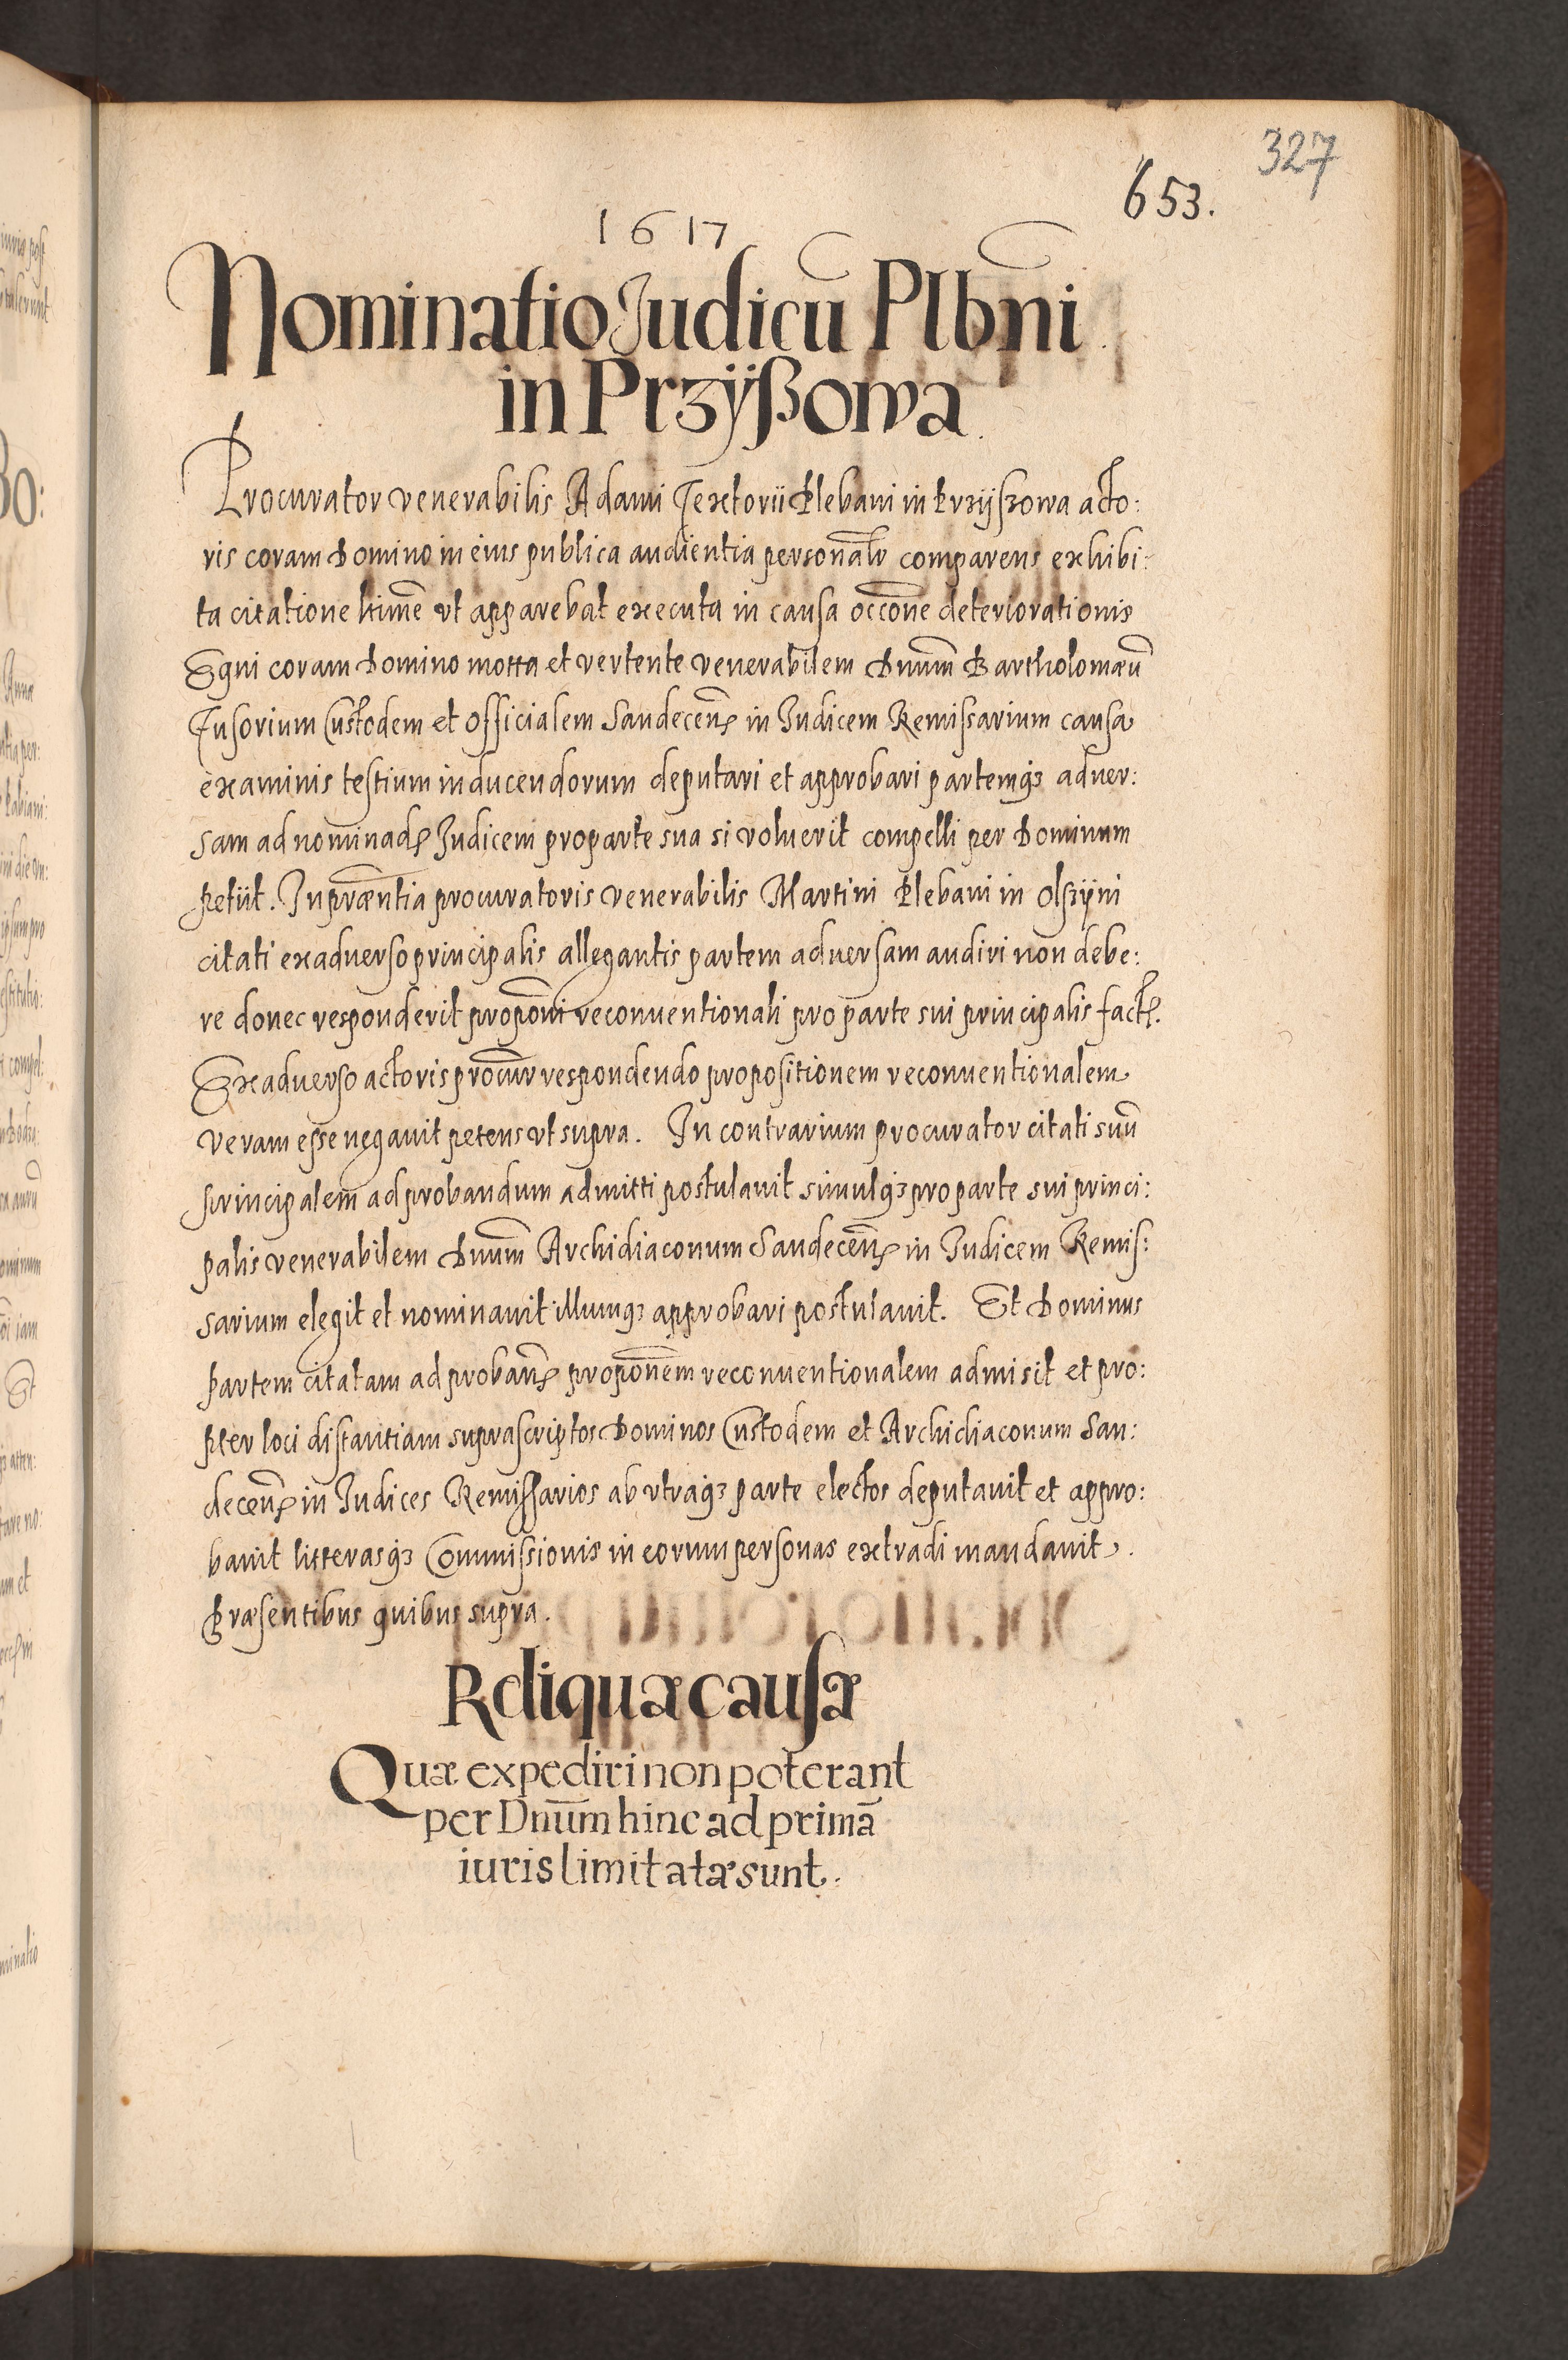 327
653.
1617
Nominatio Judicū Plbn̄i
in Przÿßowa.
Procurator venerabilis Adami Textorii Plebani in Przÿszowa acto:
ris coram Domino in eius publica audientia personalr comparens exhibi:
ta citatione ltimē vt apparebat executa in causa occōne deteriorationis
Eqni coram Domino motta et vertente venerabilem Dnum Bartholomæū
Fusorium Custodem et Officialem Sandecen̄ in Judicem Remissarium causa
examinis testium inducendorum deputari et approbari partemq3 aduer:
sam ad nominad Judicem pro parte sua si voluerit compelli per Dominum
petiit. In præntia procuratoris venerabilis Martini Plebani in Olszÿni
citati ex aduerso principalis allegantis partem aduersam audiri non debe:
re donec responderit propōni reconuentionali pro parte sui principalis fact.
Ex aduerso actoris procur respondendo propositionem reconuentionalem
veram esse negauit petens vt supra. In contrarium procurator citati suū
principalem ad probandum admitti postulauit simulq3 pro parte sui princi:
palis venerabilem Dnum Archidiaconum Sandecen̄ in Judicem Remis:
sarium elegit et nominauit illumq3 approbari postulauit. Et Dominus
partem citatam ad proban̄ propōnem reconuentionalem admisit et pro:
pter loci distantiam suprascriptos Dominos Custodem et Archidiaconum San:
decen̄ in Judices Remissarios ab vtraq3 parte electos deputauit et appro:
bauit litterasq3 Commissionis in eorum personas extradi mandauit.
Præsentibus quibus supra.
Reliquæ causæ
Quæ expediri non poterant
per Dnūm hinc ad primā
iuris limitatæ sunt.